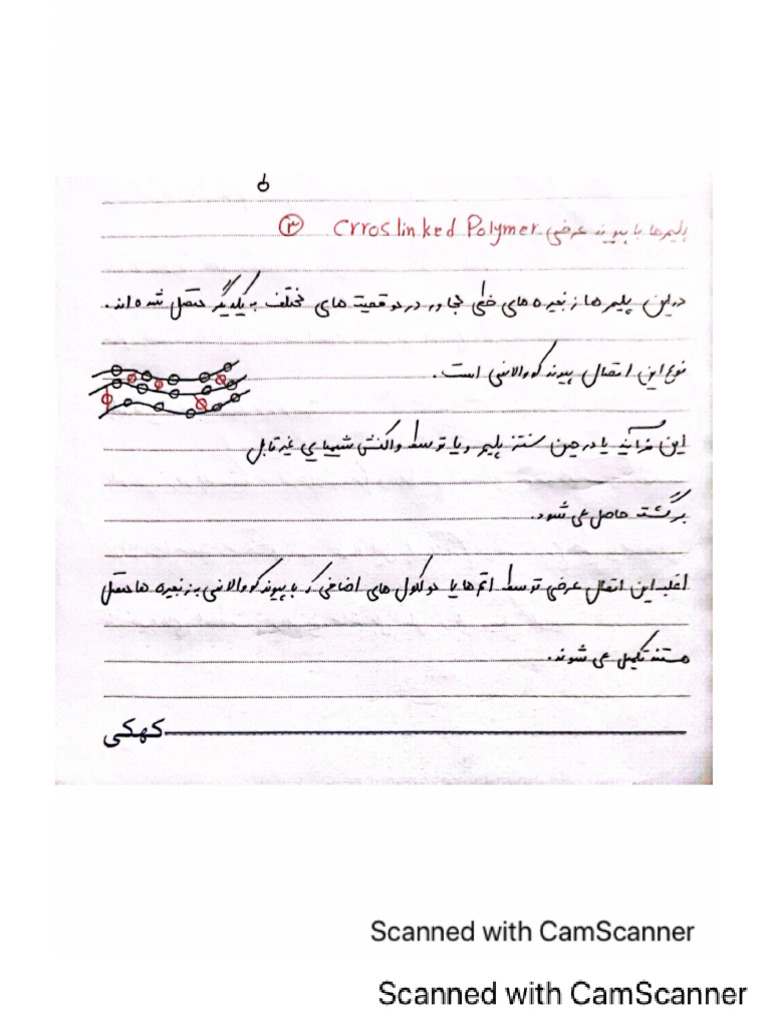 ۵
پلیمرها با پیوند عرضی Crroslinked Polymer ③
در این پلیمرها زنجیره های خطی مجاور در موقعیت های مختلف به یکدیگر متصل شده اند.
نوع این اتصال پیوند کووالانسی است.
این فرآیند یا در حین سنتز پلیمر و یا توسط واکنش شیمیایی غیر قابل
برگشت حاصل می شود.
اغلب این اتصال عرضی توسط اتم ها یا مولکول های اضافی که با پیوند کووالانسی به زنجیره ها متصل
هستند تکمیل می شوند.
کهکی
Scanned with CamScanner
Scanned with CamScanner